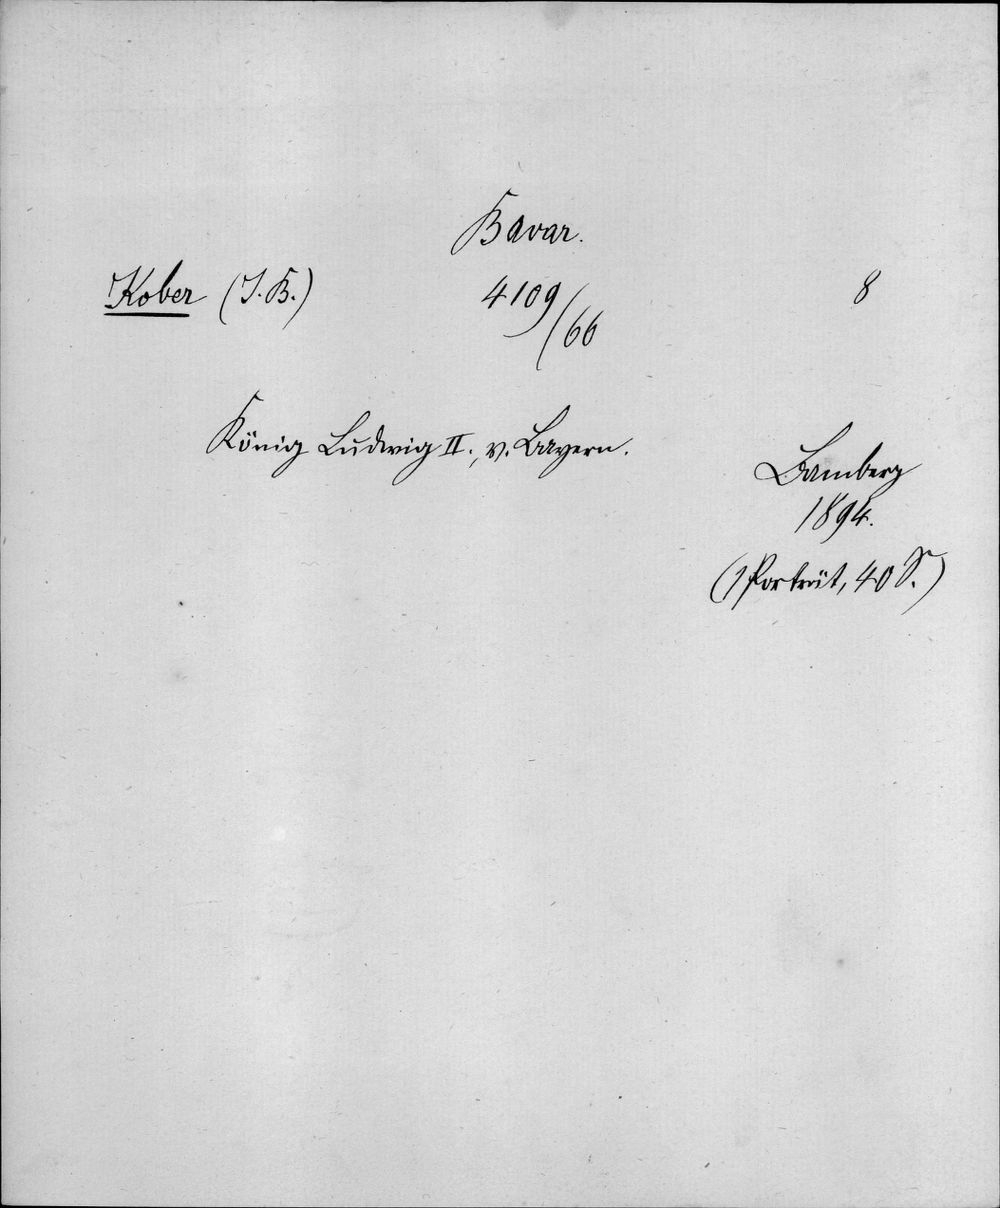 Bavar.
Kober (J. B.) 4109/66 8
König Ludwig II., v. Bayern.
Bamberg
1894.
(1 Porträt, 40 S.)